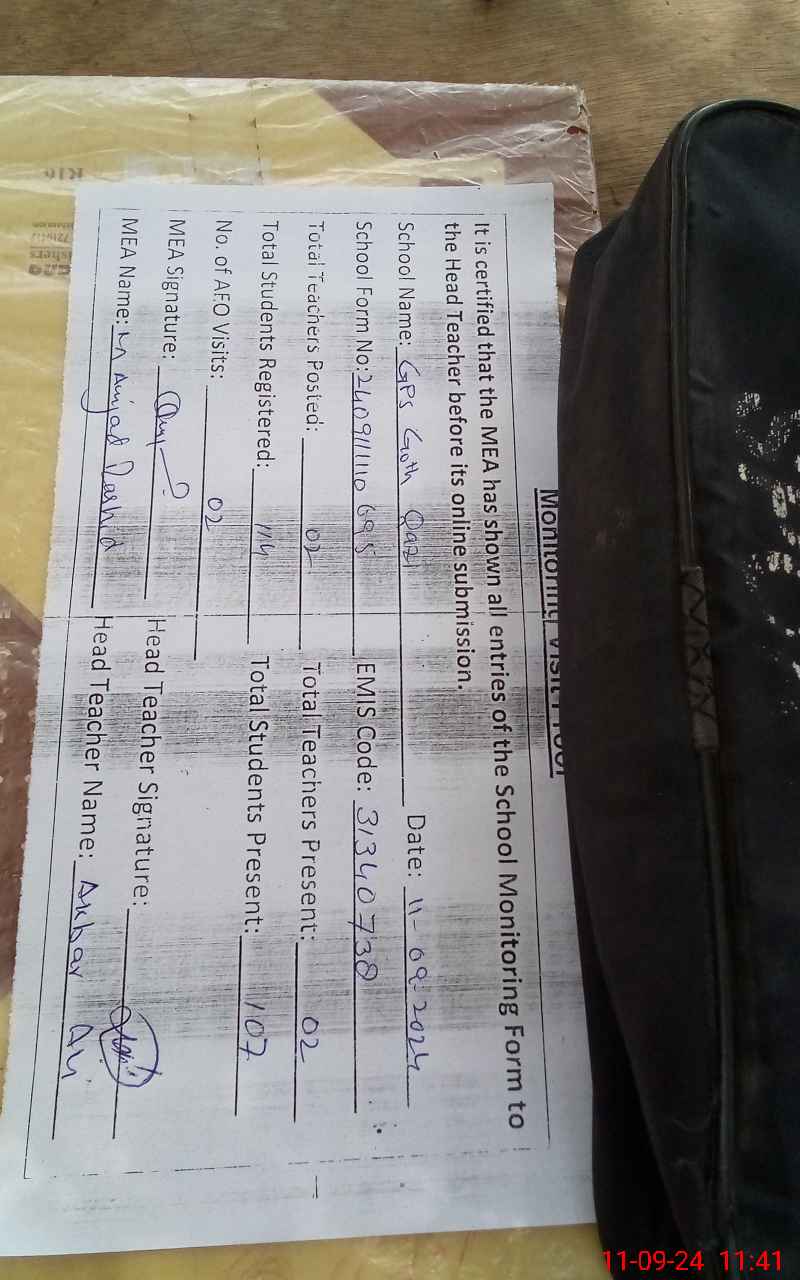 Monitoring Visit Proof
It is certified that the MEA has shown all entries of the School Monitoring Form to
the Head Teacher before its online submission.
School Name: GPS Goth Qazi Date: 11-09-2024
School Form No: 2409111110695 EMIS Code: 31340738
Total Teachers Posted: 02 Total Teachers Present: 02
Total Students Registered: 114 Total Students Present: 107
No. of AEO Visits: 02
MEA Signature: Head Teacher Signature:
MEA Name: M Amjad Rashid Head Teacher Name: Akbar Ali
K16
11-09-24 11:41